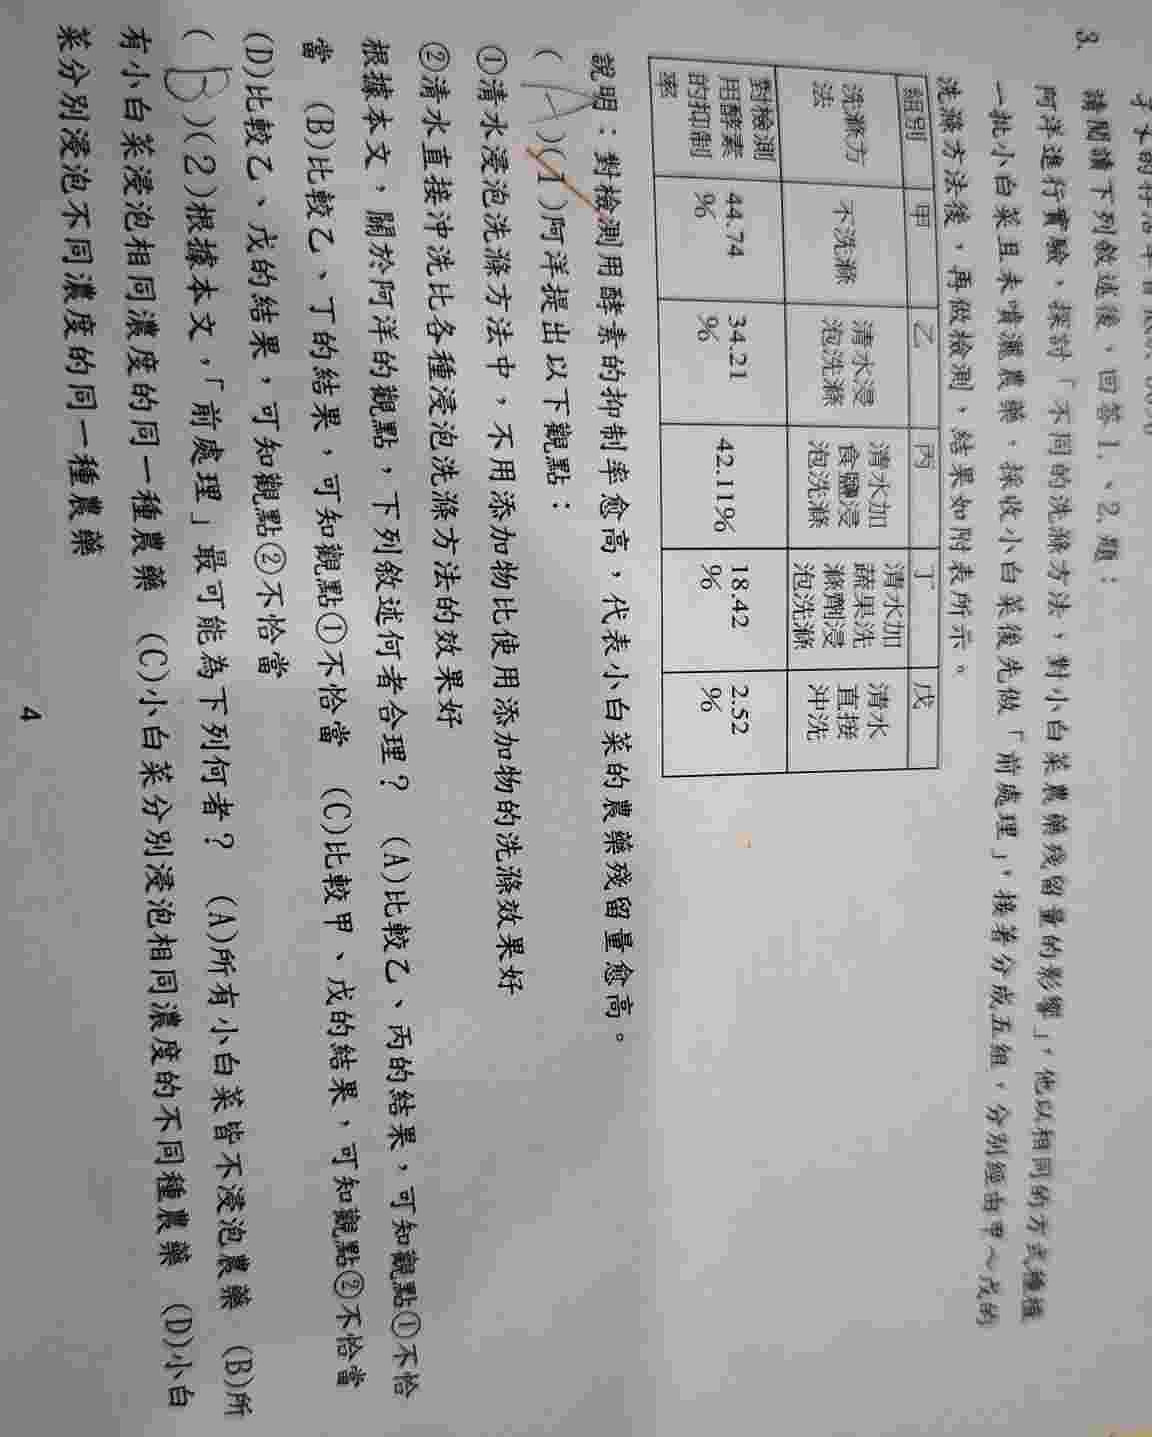 3. 請閱讀下列敘述後，回答1.、2.題：
阿洋進行實驗，探討「不同的洗滌方法，對小白菜農藥殘留量的影響」，他以相同的方式種植
一批小白菜且未噴灑農藥，採收小白菜後先做「前處理」，接著分成五組，分別經由甲～戊的
洗滌方法後，再做檢測，結果如附表所示。
組別 甲 乙 丙 丁 戊
洗滌方法 不洗滌 清水浸泡洗滌 清水加食鹽浸泡洗滌 清水加蔬果洗滌劑浸泡洗滌 清水直接沖洗
對檢測用酵素的抑制率 44.74% 34.21% 42.11% 18.42% 2.52%
說明：對檢測用酵素的抑制率愈高，代表小白菜的農藥殘留量愈高。
( A )(1)阿洋提出以下觀點：
①清水浸泡洗滌方法中，不用添加物比使用添加物的洗滌效果好
②清水直接沖洗比各種浸泡洗滌方法的效果好
根據本文，關於阿洋的觀點，下列敘述何者合理？ (A)比較乙、丙的結果，可知觀點①不恰
當 (B)比較乙、丁的結果，可知觀點①不恰當 (C)比較甲、戊的結果，可知觀點②不恰當
(D)比較乙、戊的結果，可知觀點②不恰當
( b )(2)根據本文，「前處理」最可能為下列何者？ (A)所有小白菜皆不浸泡農藥 (B)所
有小白菜浸泡相同濃度的同一種農藥 (C)小白菜分別浸泡相同濃度的不同種農藥 (D)小白
菜分別浸泡不同濃度的同一種農藥
4